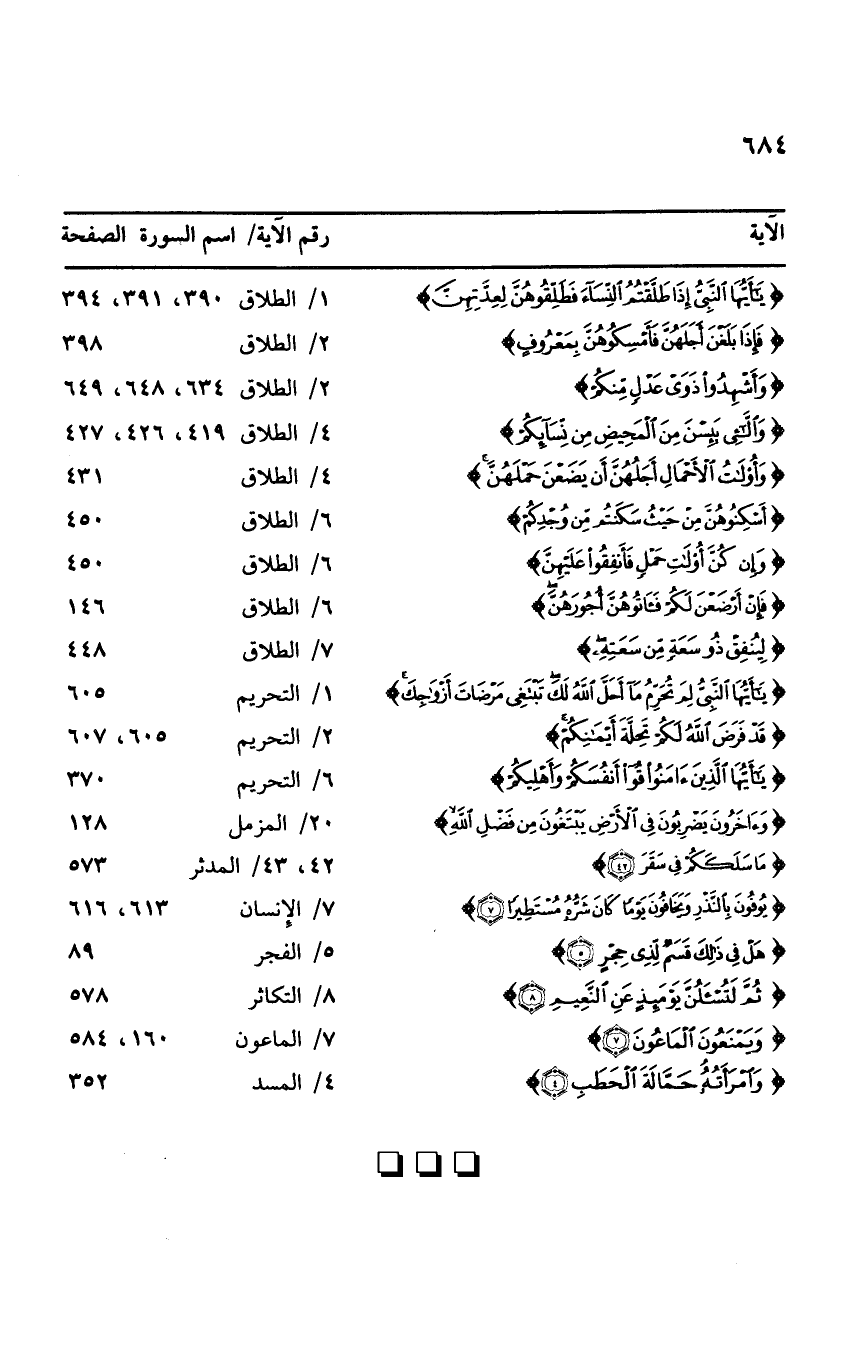 ٦٨٤
الآية رقم الآية/ اسم السورة الصفحة
﴿ يَٰٓأَيُّهَا ٱلنَّبِىُّ إِذَا طَلَّقْتُمُ ٱلنِّسَآءَ فَطَلِّقُوهُنَّ لِعِدَّتِهِنَّ ﴾ ١/ الطلاق ٣٩٠، ٣٩١، ٣٩٤
﴿ فَإِذَا بَلَغْنَ أَجَلَهُنَّ فَأَمْسِكُوهُنَّ بِمَعْرُوفٍ ﴾ ٢/ الطلاق ٣٩٨
﴿ وَأَشْهِدُوا۟ ذَوَىْ عَدْلٍ مِّنكُمْ ﴾ ٢/ الطلاق ٦٣٤، ٦٤٨، ٦٤٩
﴿ وَٱلَّٰٓـِٔى يَئِسْنَ مِنَ ٱلْمَحِيضِ مِن نِّسَآئِكُمْ ﴾ ٤/ الطلاق ٤١٩، ٤٢٦، ٤٢٧
﴿ وَأُو۟لَٰتُ ٱلْأَحْمَالِ أَجَلُهُنَّ أَن يَضَعْنَ حَمْلَهُنَّ ۚ ﴾ ٤/ الطلاق ٤٣١
﴿ أَسْكِنُوهُنَّ مِنْ حَيْثُ سَكَنتُم مِّن وُجْدِكُمْ ﴾ ٦/ الطلاق ٤٥٠
﴿ وَإِن كُنَّ أُو۟لَٰتِ حَمْلٍ فَأَنفِقُوا۟ عَلَيْهِنَّ ﴾ ٦/ الطلاق ٤٥٠
﴿ فَإِنْ أَرْضَعْنَ لَكُمْ فَـَٔاتُوهُنَّ أُجُورَهُنَّ ۖ ﴾ ٦/ الطلاق ١٤٦
﴿ لِيُنفِقْ ذُو سَعَةٍ مِّن سَعَتِهِۦ ۖ ﴾ ٧/ الطلاق ٤٤٨
﴿ يَٰٓأَيُّهَا ٱلنَّبِىُّ لِمَ تُحَرِّمُ مَآ أَحَلَّ ٱللَّهُ لَكَ ۖ تَبْتَغِى مَرْضَاتَ أَزْوَٰجِكَ ۚ ﴾ ١/ التحريم ٦٠٥
﴿ قَدْ فَرَضَ ٱللَّهُ لَكُمْ تَحِلَّةَ أَيْمَٰنِكُمْ ۚ ﴾ ٢/ التحريم ٦٠٥، ٦٠٧
﴿ يَٰٓأَيُّهَا ٱلَّذِينَ ءَامَنُوا۟ قُوٓا۟ أَنفُسَكُمْ وَأَهْلِيكُمْ ﴾ ٦/ التحريم ٣٧٠
﴿ وَءَاخَرُونَ يَضْرِبُونَ فِى ٱلْأَرْضِ يَبْتَغُونَ مِن فَضْلِ ٱللَّهِ ۙ ﴾ ٢٠/ المزمل ١٢٨
﴿ مَا سَلَكَكُمْ فِى سَقَرَ ٤٢ ﴾ ٤٢، ٤٣/ المدثر ٥٧٣
﴿ يُوفُونَ بِٱلنَّذْرِ وَيَخَافُونَ يَوْمًا كَانَ شَرُّهُۥ مُسْتَطِيرًا ٧ ﴾ ٧/ الإنسان ٦١٣، ٦١٦
﴿ هَلْ فِى ذَٰلِكَ قَسَمٌ لِّذِى حِجْرٍ ٥ ﴾ ٥/ الفجر ٨٩
﴿ ثُمَّ لَتُسْـَٔلُنَّ يَوْمَئِذٍ عَنِ ٱلنَّعِيمِ ٨ ﴾ ٨/ التكاثر ٥٧٨
﴿ وَيَمْنَعُونَ ٱلْمَاعُونَ ٧ ﴾ ٧/ الماعون ١٦٠، ٥٨٤
﴿ وَٱمْرَأَتُهُۥ حَمَّالَةَ ٱلْحَطَبِ ٤ ﴾ ٤/ المسد ٣٥٢